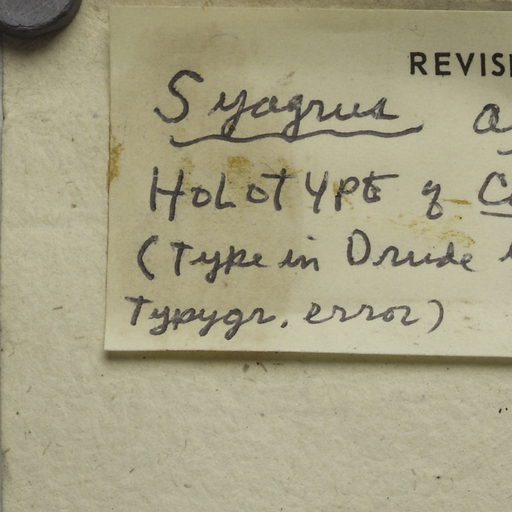 REVIS
Syagrus
HOLOTYPE of C
(Type in Drude
Typogr. error)